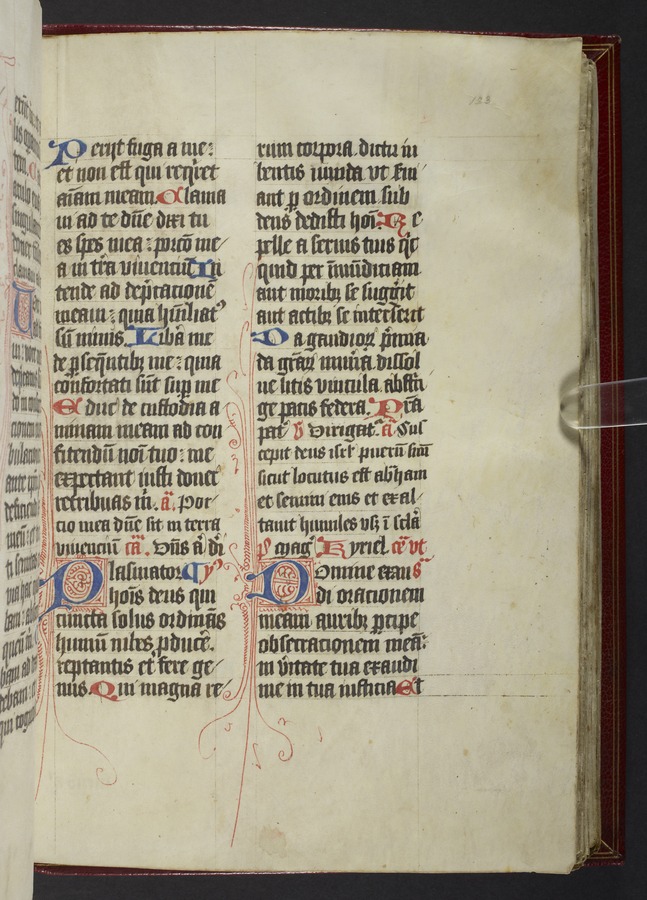 133
Perijt fuga a me:
et non est qui reqͥret
aīam meam. Clama
ui ad te dn̄e dixi tu
es spes mea: porcō me
a in tr̄a viuenciū In
tende ad dep̄cationē
meam: quia hūiliatꝰ
sū nimis. Libͣa me
de ꝑseq̄ntibꝫ me: quia
confortati sūt suꝑ me
Educ de custodia a
nimam meam ad con
fitendū noī tuo: me
expectant iusti donec
retribuas m̄. a͞. Por
cio mea dn̄e sit in terra
viuenciū ca͞. Dn̄s a dͥ
Plasmator
hoīs deus qui
cuncta solus ordinās
humū iubes ꝓducē.
reptantis et fere ge
nus. Qui magna re
rum corpora. dictu iu
bentis viuida vt ẜui
ant ꝑ ordinem sub
dens dedisti hoī. Re
pelle a seruis tuis qͥc
quid per īmūdiciam
aut moribꝫ se suggͥit
aut actibꝫ se interserit
Da gaudioꝝ p̄mia
da grāꝝ mun̄a. dissol
ue litis vincula abstri
ge pacis federa. Pr̄a
pat̄ v̄ Dirigat̄. a͞. Sus
cepit deus isrl̄ puerū suū
sicut locutus est abͣham
et semini eius et exal
tauit humiles vsqꝫ ī sc̄la
Kyriel. ce͞ vt s̄
Domine exau
di orationem
meam: auribꝫ ꝑcipe
obsecracionem meā:
in v̄itate tua exaudi
me in tua iusticia Et